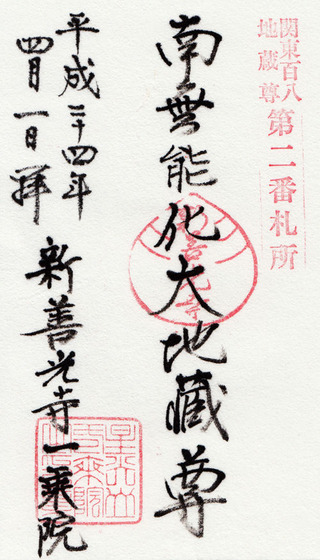 関東百八
地蔵尊
第二番札所
南無能化大地蔵尊
平成二十四年
四月一日拝
新善光寺一乗院